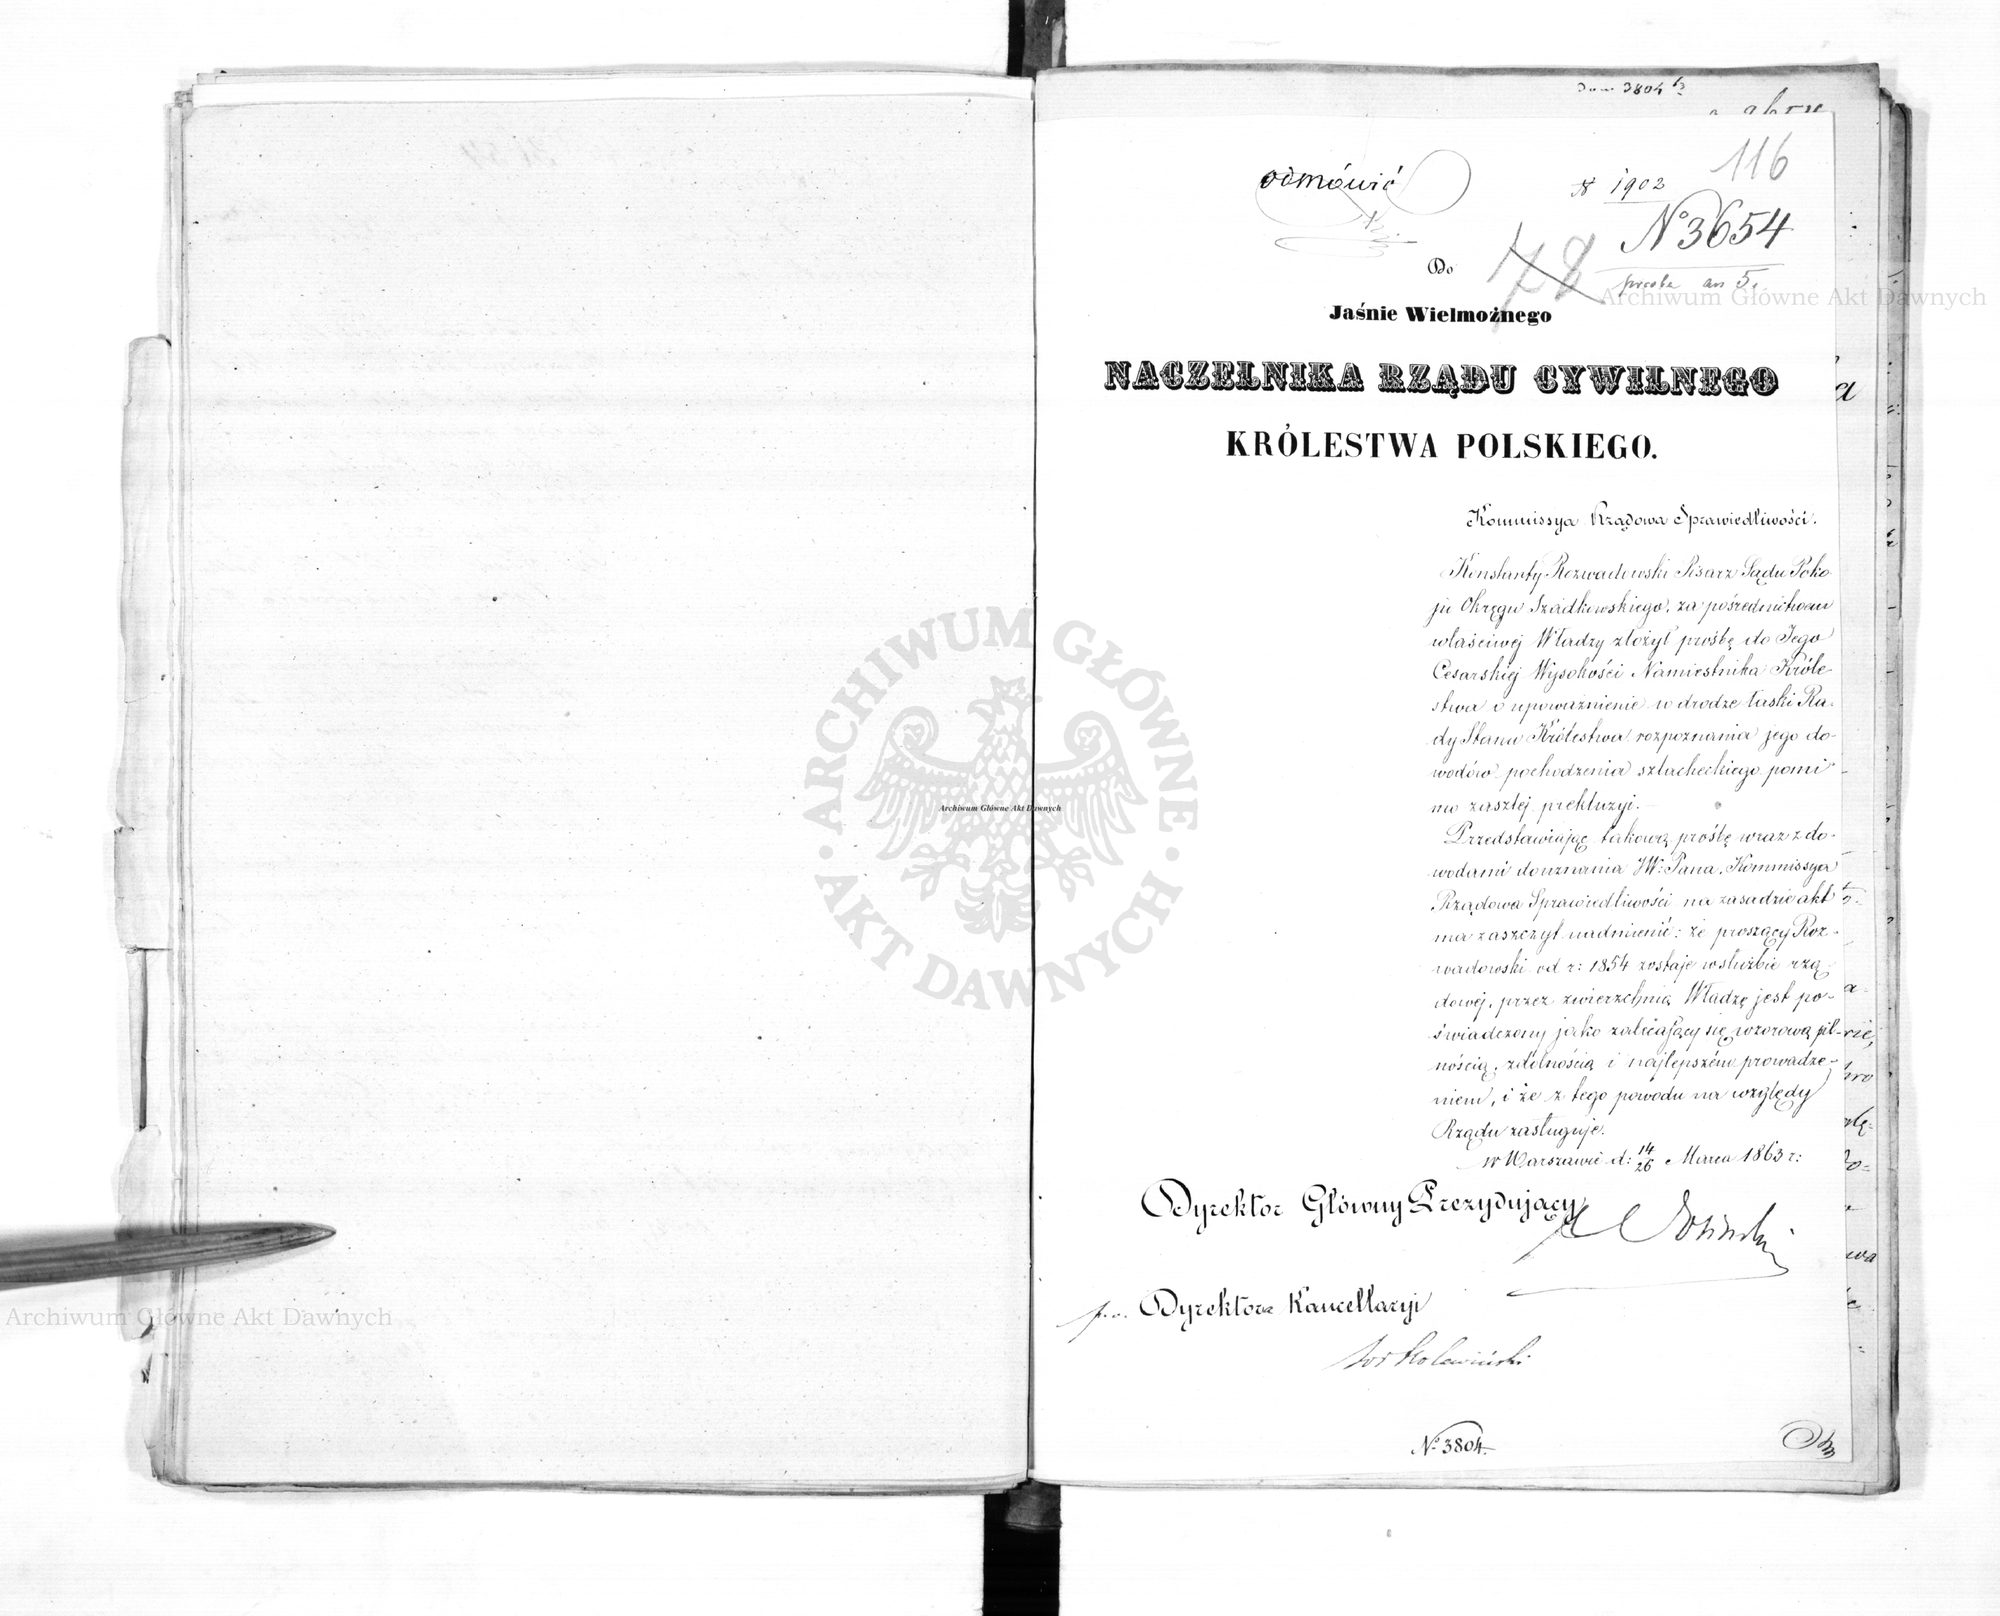 116
odmówić
N 1902
No 3654
78
Do
Jaśnie Wielmożnego
NACZELNIKA RZĄDU CYWILNEGO
KRÓLESTWA POLSKIEGO.
Kommissya Rządowa Sprawiedliwości.
Konstanty Rozwadowski Pisarz Sądu Poko
ju Okręgu Szadkowskiego, za pośrednictwem
właściwej Władzy złożył prośbę do Jego
Cesarskiej Wysokości Namiestnika Króle-
stwa o upoważnienie w drodze łaski Ra-
dy Stanu Królestwa rozpoznania jego do-
wodów pochodzenia szlacheckiego pomi-
mo zaszłej prekluzyi.
Przedstawiając takową prośbę wraz z do-
wodami do uznania JW: Pana, Kommissya
Rządowa Sprawiedliwości na zasadzie akt
ma zaszczyt nadmienić: że proszący Roz-
wadowski od r: 1854 zostaje w służbie rzą-
dowej, przez zwierzchnią Władzę jest po-
świadczony jako zalecający się wzorową pil-
nością, zdolnością i najlepszém prowadze-
niem, i że z tego powodu na względy
Rządu zasługuje.
w Warszawie d: 14/26 Marca 1863 r:
Dyrektor Główny Prezydujący
p.o. Dyrektora Kancellaryi
No 3804.
Archiwum Główne Akt Dawnych
Archiwum Główne Akt Dawnych
Archiwum Główne Akt Dawnych
ARCHIWUM GŁÓWNE
AKT DAWNYCH